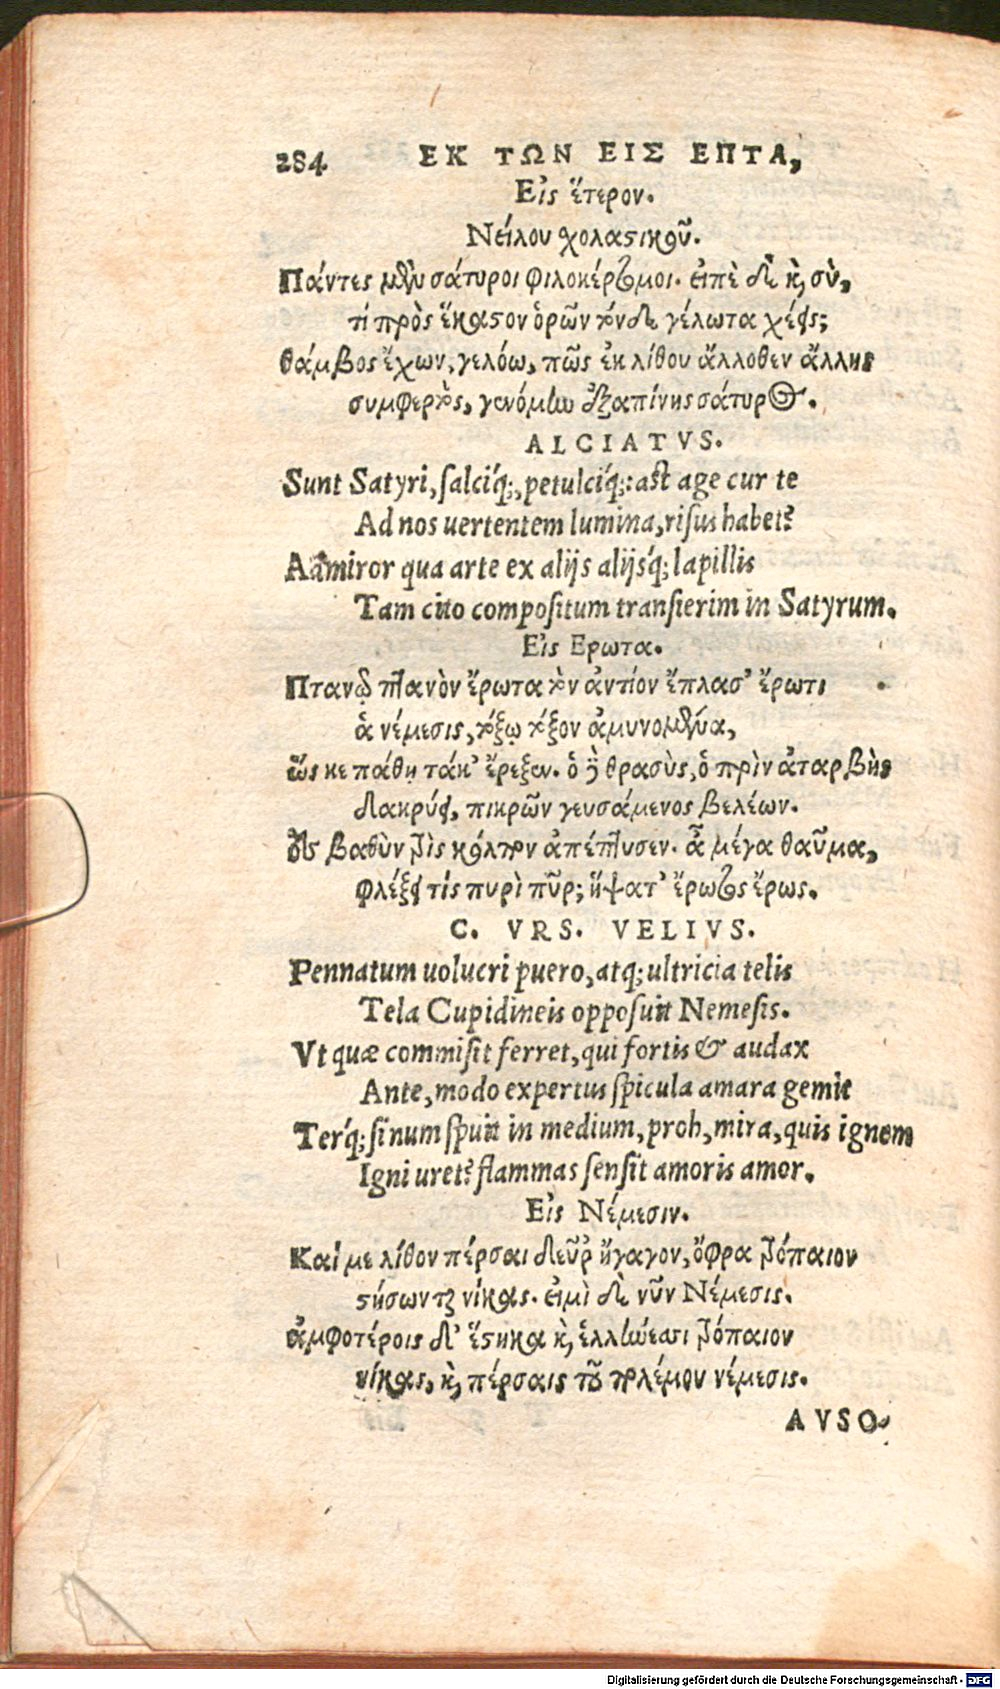 284 ΕΚ ΤΩΝ ΕΙΣ ΕΠΤΑ,
Εἰς ἕτερον.
Νείλου χολαϛικοῦ.
Πάντες μὲν σάτυροι φιλοκέρτομοι. εἰπὲ δὲ κὶ σὺ,
τί πρὸς ἕκαϛον ὁρῶν τόνδε γέλωτα χέεις;
Θάμβος ἔχων, γελόω, πῶς ἐκ λίθου ἄλλοθεν ἄλλης
συμφερτὸς, γενόμην ἐξαπίνης σάτυρος.
ALCIATVS.
Sunt Satyri, ſalciq́;, petulciq́;: ast age cur te
Ad nos uertentem lumina, riſus habet?
Admiror qua arte ex alijs alijsq́; lapillis
Tam cito compoſitum tranſierim in Satyrum.
Εἰς Ερωτα.
Πτανῷ πτανὸν ἔρωτα τὸν ἀντίον ἔπλασ' ἔρωτι
ἁ νέμεσις, τόξῳ τόξον ἀμυνομένα,
ὥς κε πάθῃ τάκ' ἔρεξεν. ὁ δὲ θρασὺς, ὁ πρὶν ἀταρβὴς
δακρύει, πικρῶν γευσάμενος βελέων.
ἐς βαθὺν τρὶς κόλπον ἀπέπτυσεν. ἆ μέγα θαῦμα,
φλέξει τίς πυρὶ πῦρ; ἥψατ' ἔρωτος ἔρως.
C. VRS. VELIVS.
Pennatum uolucri puero, atq; ultricia telis
Tela Cupidineis oppoſuit Nemeſis.
Vt quæ commiſit ferret, qui fortis & audax
Ante, modo expertus ſpicula amara gemit
Terq́; ſinum ſpuit in medium, proh, mira, quis ignem
Igni uret? flammas ſenſit amoris amor.
Εἰς Νέμεσιν.
Καί με λίθον πέρσαι δεῦρ' ἤγαγον, ὄφρα τρόπαιον
ϛήσωνται νίκας. εἰμὶ δὲ νῦν Νέμεσις.
ἀμφοτέροις δ' ἕϛηκα κὶ ἑλλήνεσσι τρόπαιον
νίκας, κὶ πέρσαις τοῦ πολέμου νέμεσις.
AVSO-
Digitalisierung gefördert durch die Deutsche Forschungsgemeinschaft - DFG